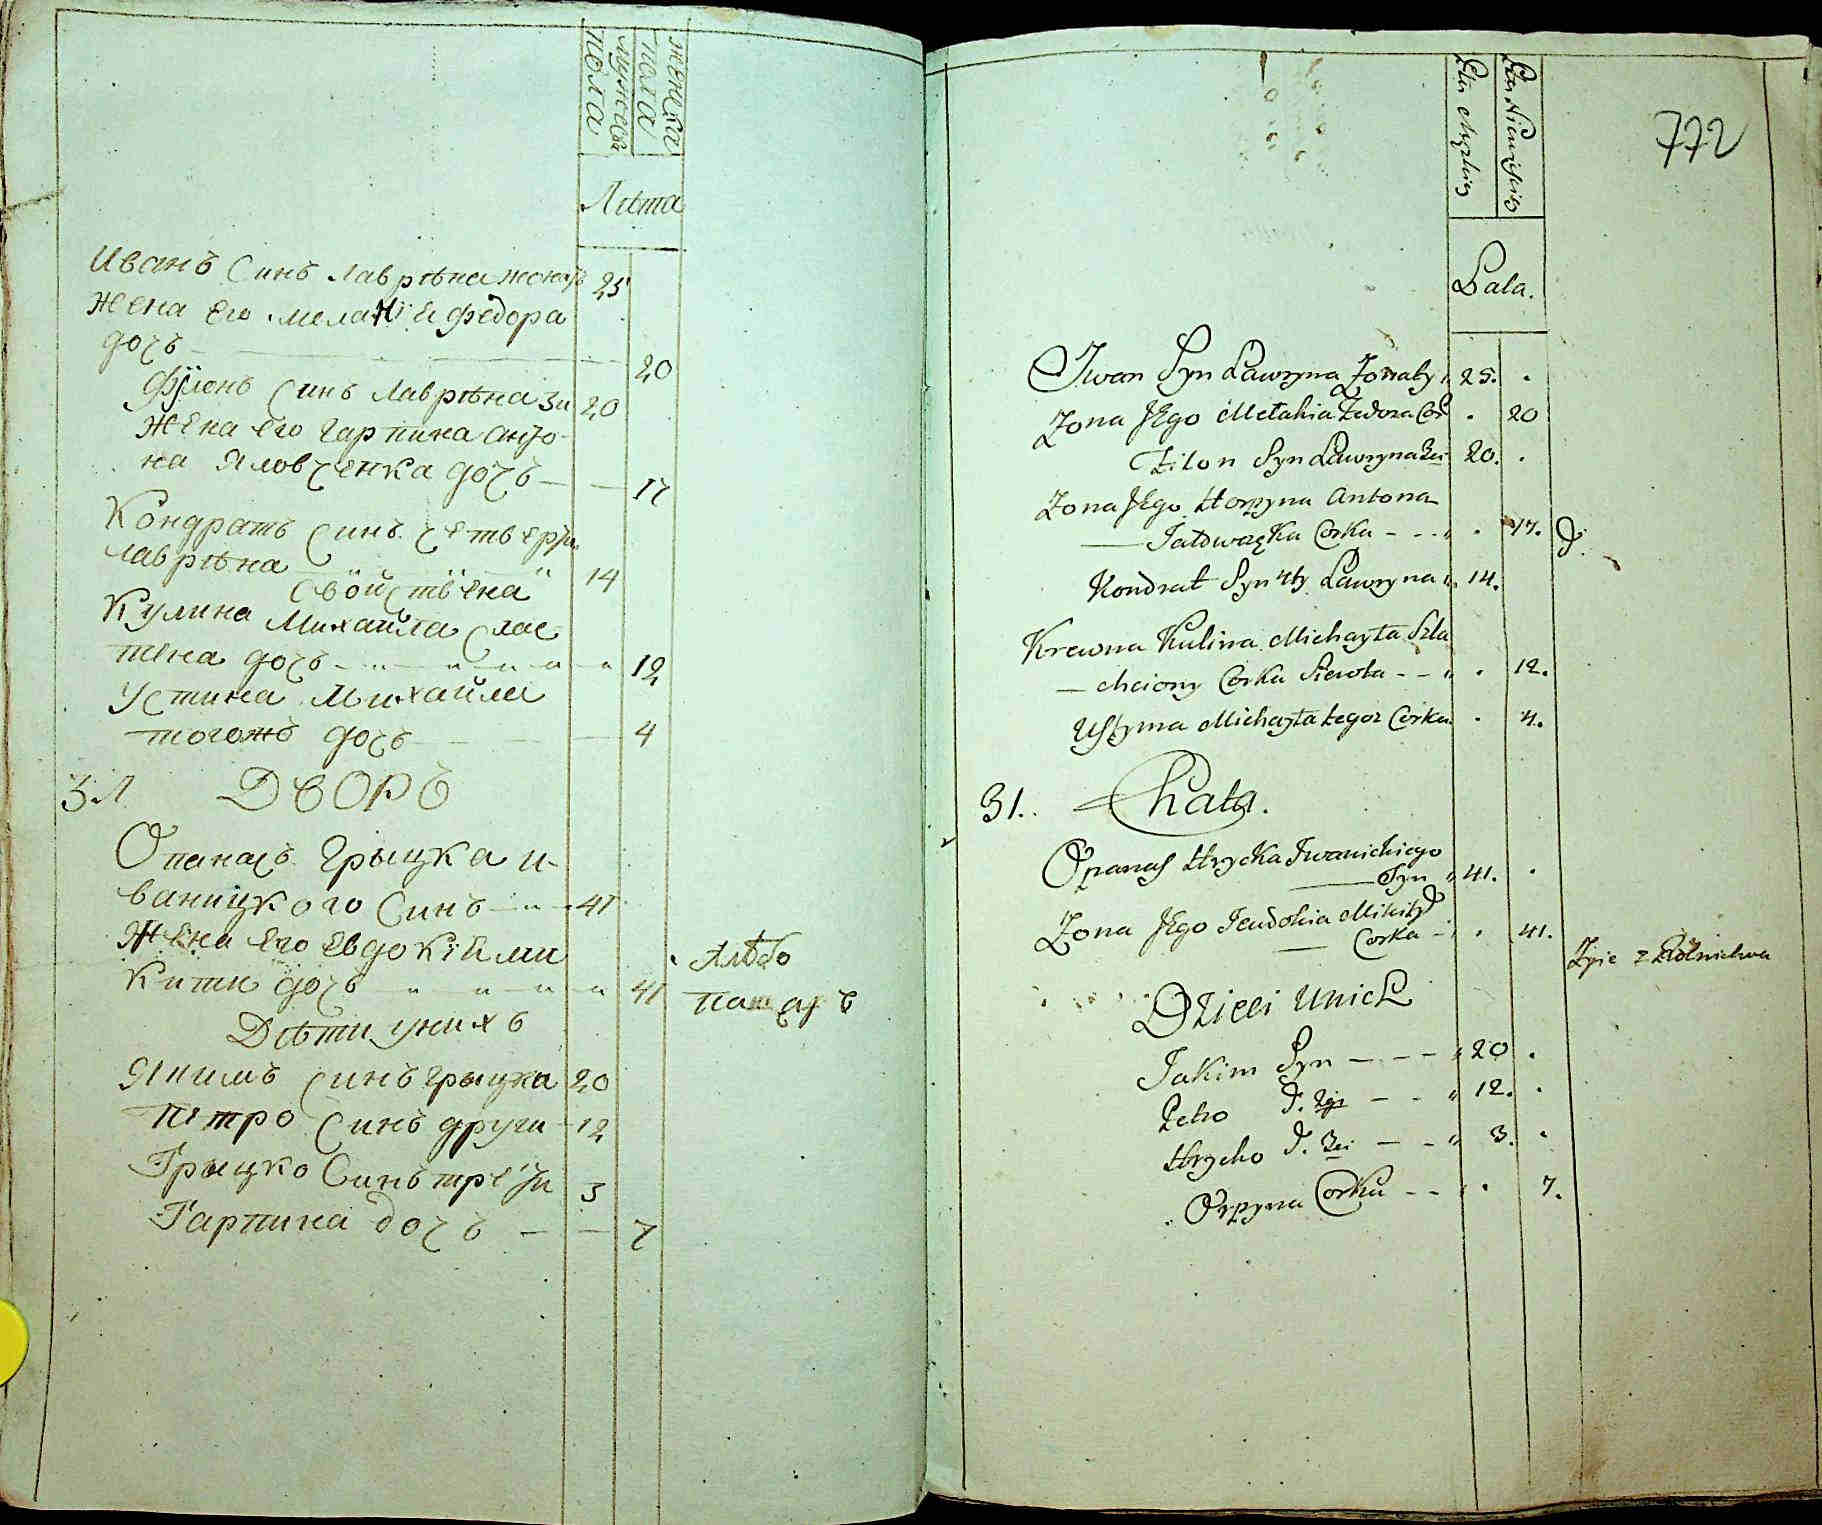 мужеска пола
женска пола
Лѣта
Иванъ Синъ Лаврѣна жонатъ 25
Жена Его Меланїѣ Федора
дочъ 20
Фулонъ Синъ Лаврѣна 3и 20
Жена его Гарпина Анто-
на Яловченка дочъ 17
Кондратъ Синъ четверти
Лаврѣна 14
Свойствена
Кулина Михайла Слас
тена дочъ 12
Устина Михайла
тогожъ дочъ 4
ЗЛ ДВОРЪ
Опанасъ Грыцка И-
ваницкого Синъ 41
Жена Его Евдокїѣ Ми
кити дочъ 41
хлѣбо
пашецъ
Дѣти унихъ
Якимъ Синъ Грыцка 20
Петро Синъ други 12
Грыцко Синъ трети 3
Гарпина дочъ 7
772
Płci Męzkiey
Płci Niewieściey
Lata.
Iwan Syn Ławryna Żonaty 25.
Żona JEgo Mełahia Fedora Cor 20
Filon Syn Ławryna 3ci 20.
Żona JEgo Horpyna Antona
Jałowczęka Corka 17. d.
Kondrat Syn 4ty Ławryna 14.
Krewna Kulina Michayła Szla
chciony Corka Sierota 12.
Ustyma Michayła tegoz Corka 4.
31. Chata.
Opanas Hrycka Iwanickiego
Syn 41.
Żona JEgo Jeudokia Mikity
Corka 41.
Żyie z Rolnictwa
Dzieci Unich
Jakim Syn 20
Petro d. 2gi 12.
Hrycko d. 3ci 3.
Orpyna Corka 7.